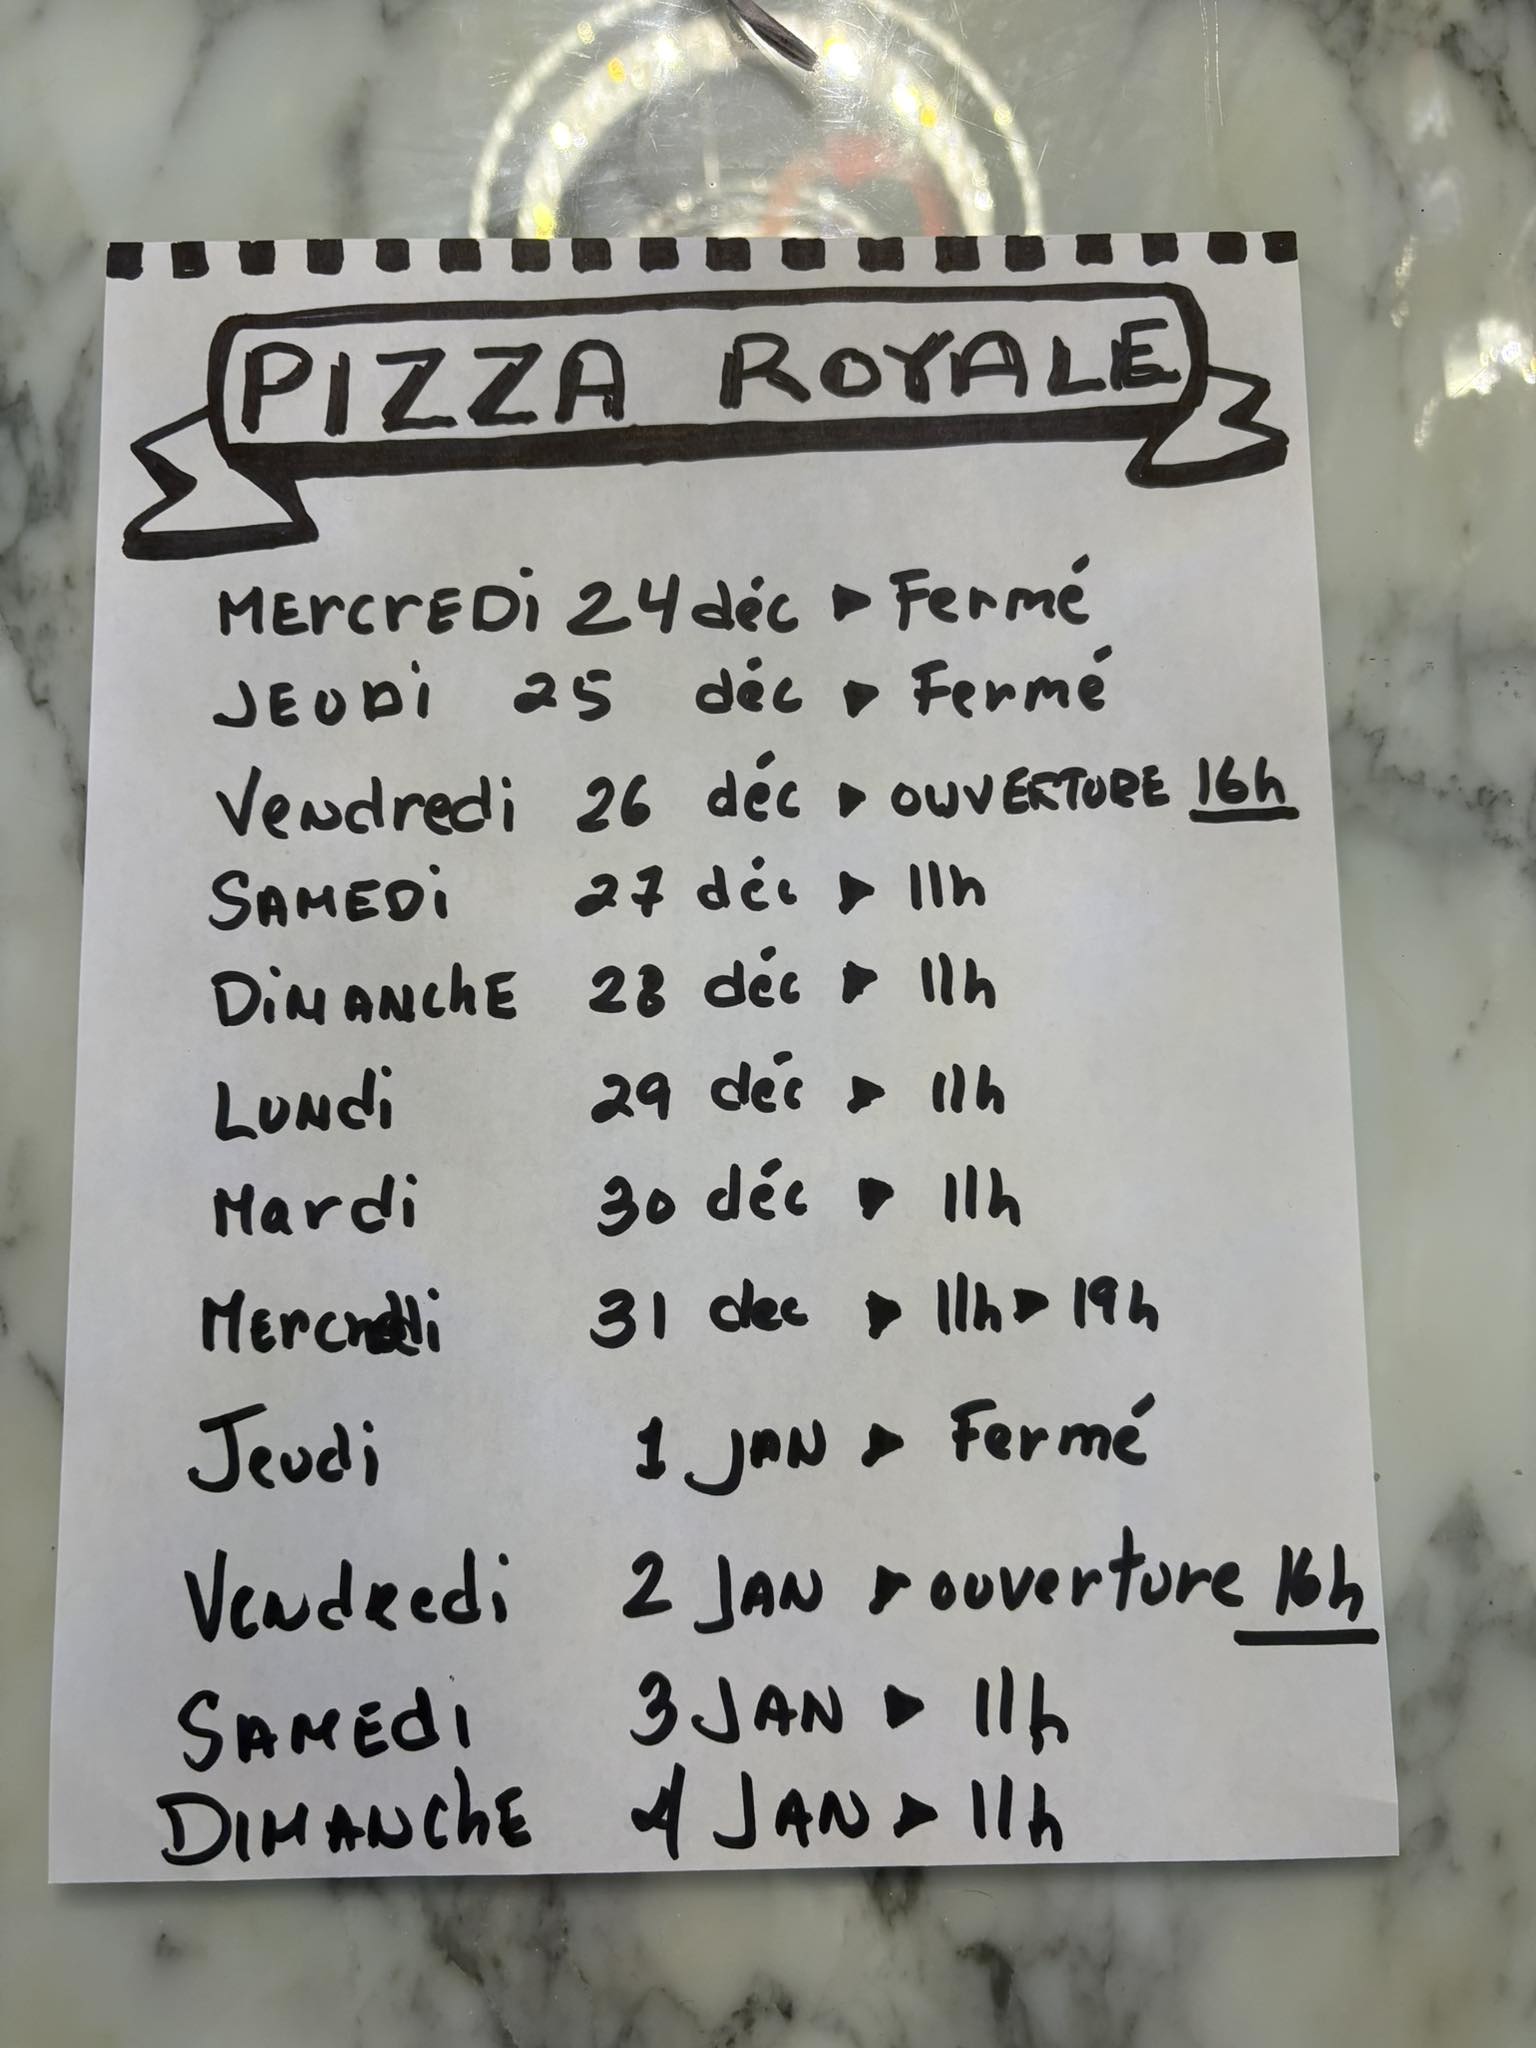 PIZZA ROYALE
MERCREDi 24 déc ▶ Fermé
JEUDi 25 déc ▶ Fermé
Vendredi 26 déc ▶ OUVERTURE 16h
SAMEDi 27 déc ▶ 11h
DiMANChE 28 déc ▶ 11h
LUNdi 29 déc ▶ 11h
Mardi 30 déc ▶ 11h
Mercredi 31 dec ▶ 11h ▶ 19h
Jeudi 1 JAN ▶ Fermé
Vendredi 2 JAN ▶ ouverture 16h
SAMEdi 3 JAN ▶ 11h
DIMANChE 4 JAN ▶ 11h